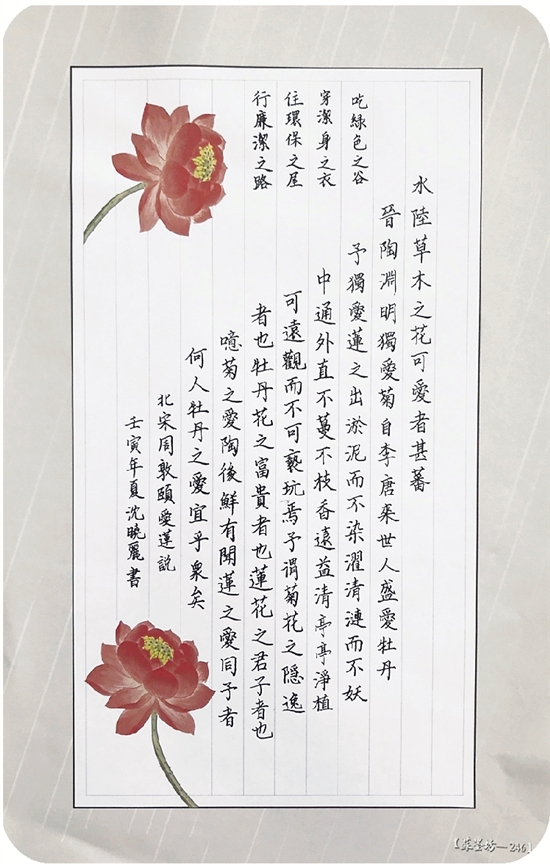 吃綠色之谷
穿潔身之衣
住環保之屋
行廉潔之路
水陸草木之花可愛者甚蕃
晉陶淵明獨愛菊自李唐來世人盛愛牡丹
予獨愛蓮之出淤泥而不染濯清漣而不妖
中通外直不蔓不枝香遠益清亭亭淨植
可遠觀而不可褻玩焉予謂菊花之隱逸
者也牡丹花之富貴者也蓮花之君子者也
噫菊之愛陶後鮮有聞蓮之愛同予者
何人牡丹之愛宜乎衆矣
北宋周敦頤愛蓮説
壬寅年夏沈晚麗書
246